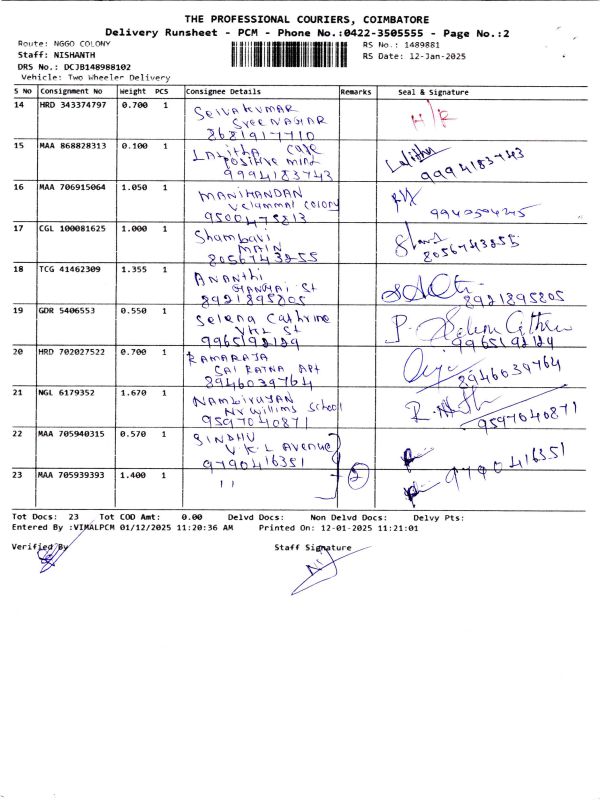 THE PROFESSIONAL COURIERS, COIMBATORE
Delivery Runsheet - PCM - Phone No.:0422-3505555 - Page No.:2
Route: NGGO COLONY
RS No.: 1489881
Staff: NISHANTH
RS Date: 12-Jan-2025
DRS No.: DCJB148988102
Vehicle: Two Wheeler Delivery
S No Consignment No Weight PCS Consignee Details Remarks Seal & Signature
14 HRD 343374797 0.700 1 SELVAKUMAR
SREE NAGAR
8681917710
15 MAA 868828313 0.100 1 LALITHA CARE Lalitha
positive mind 9994183743
9994183743
16 MAA 706915064 1.050 1 MANIKANDAN
Velammal colony
9500475813
17 CGL 100081625 1.000 1 Shambavi
MAIN 8056743255
8056743255
18 TCG 41462309 1.355 1 ANANTHI
St
8921895805 8921895805
19 GDR 5406553 0.550 1 Selena Cathrine
VKL St
9965192129 9965192129
20 HRD 702027522 0.700 1 RAMARAJA
SAI RATNA APt
8946039764 8946039764
21 NGL 6179352 1.670 1 NAMBIRAYAN
Nr willims school
9597040871 9597040871
22 MAA 705940315 0.570 1 SINDHU
V K L AVENUE
9790416351 9790416351
23 MAA 705939393 1.400 1 ,, 2
Tot Docs: 23 Tot COD Amt: 0.00 Delvd Docs: Non Delvd Docs: Delvy Pts:
Entered By :VIMALPCM 01/12/2025 11:20:36 AM Printed On: 12-01-2025 11:21:01
Verified By Staff Signature